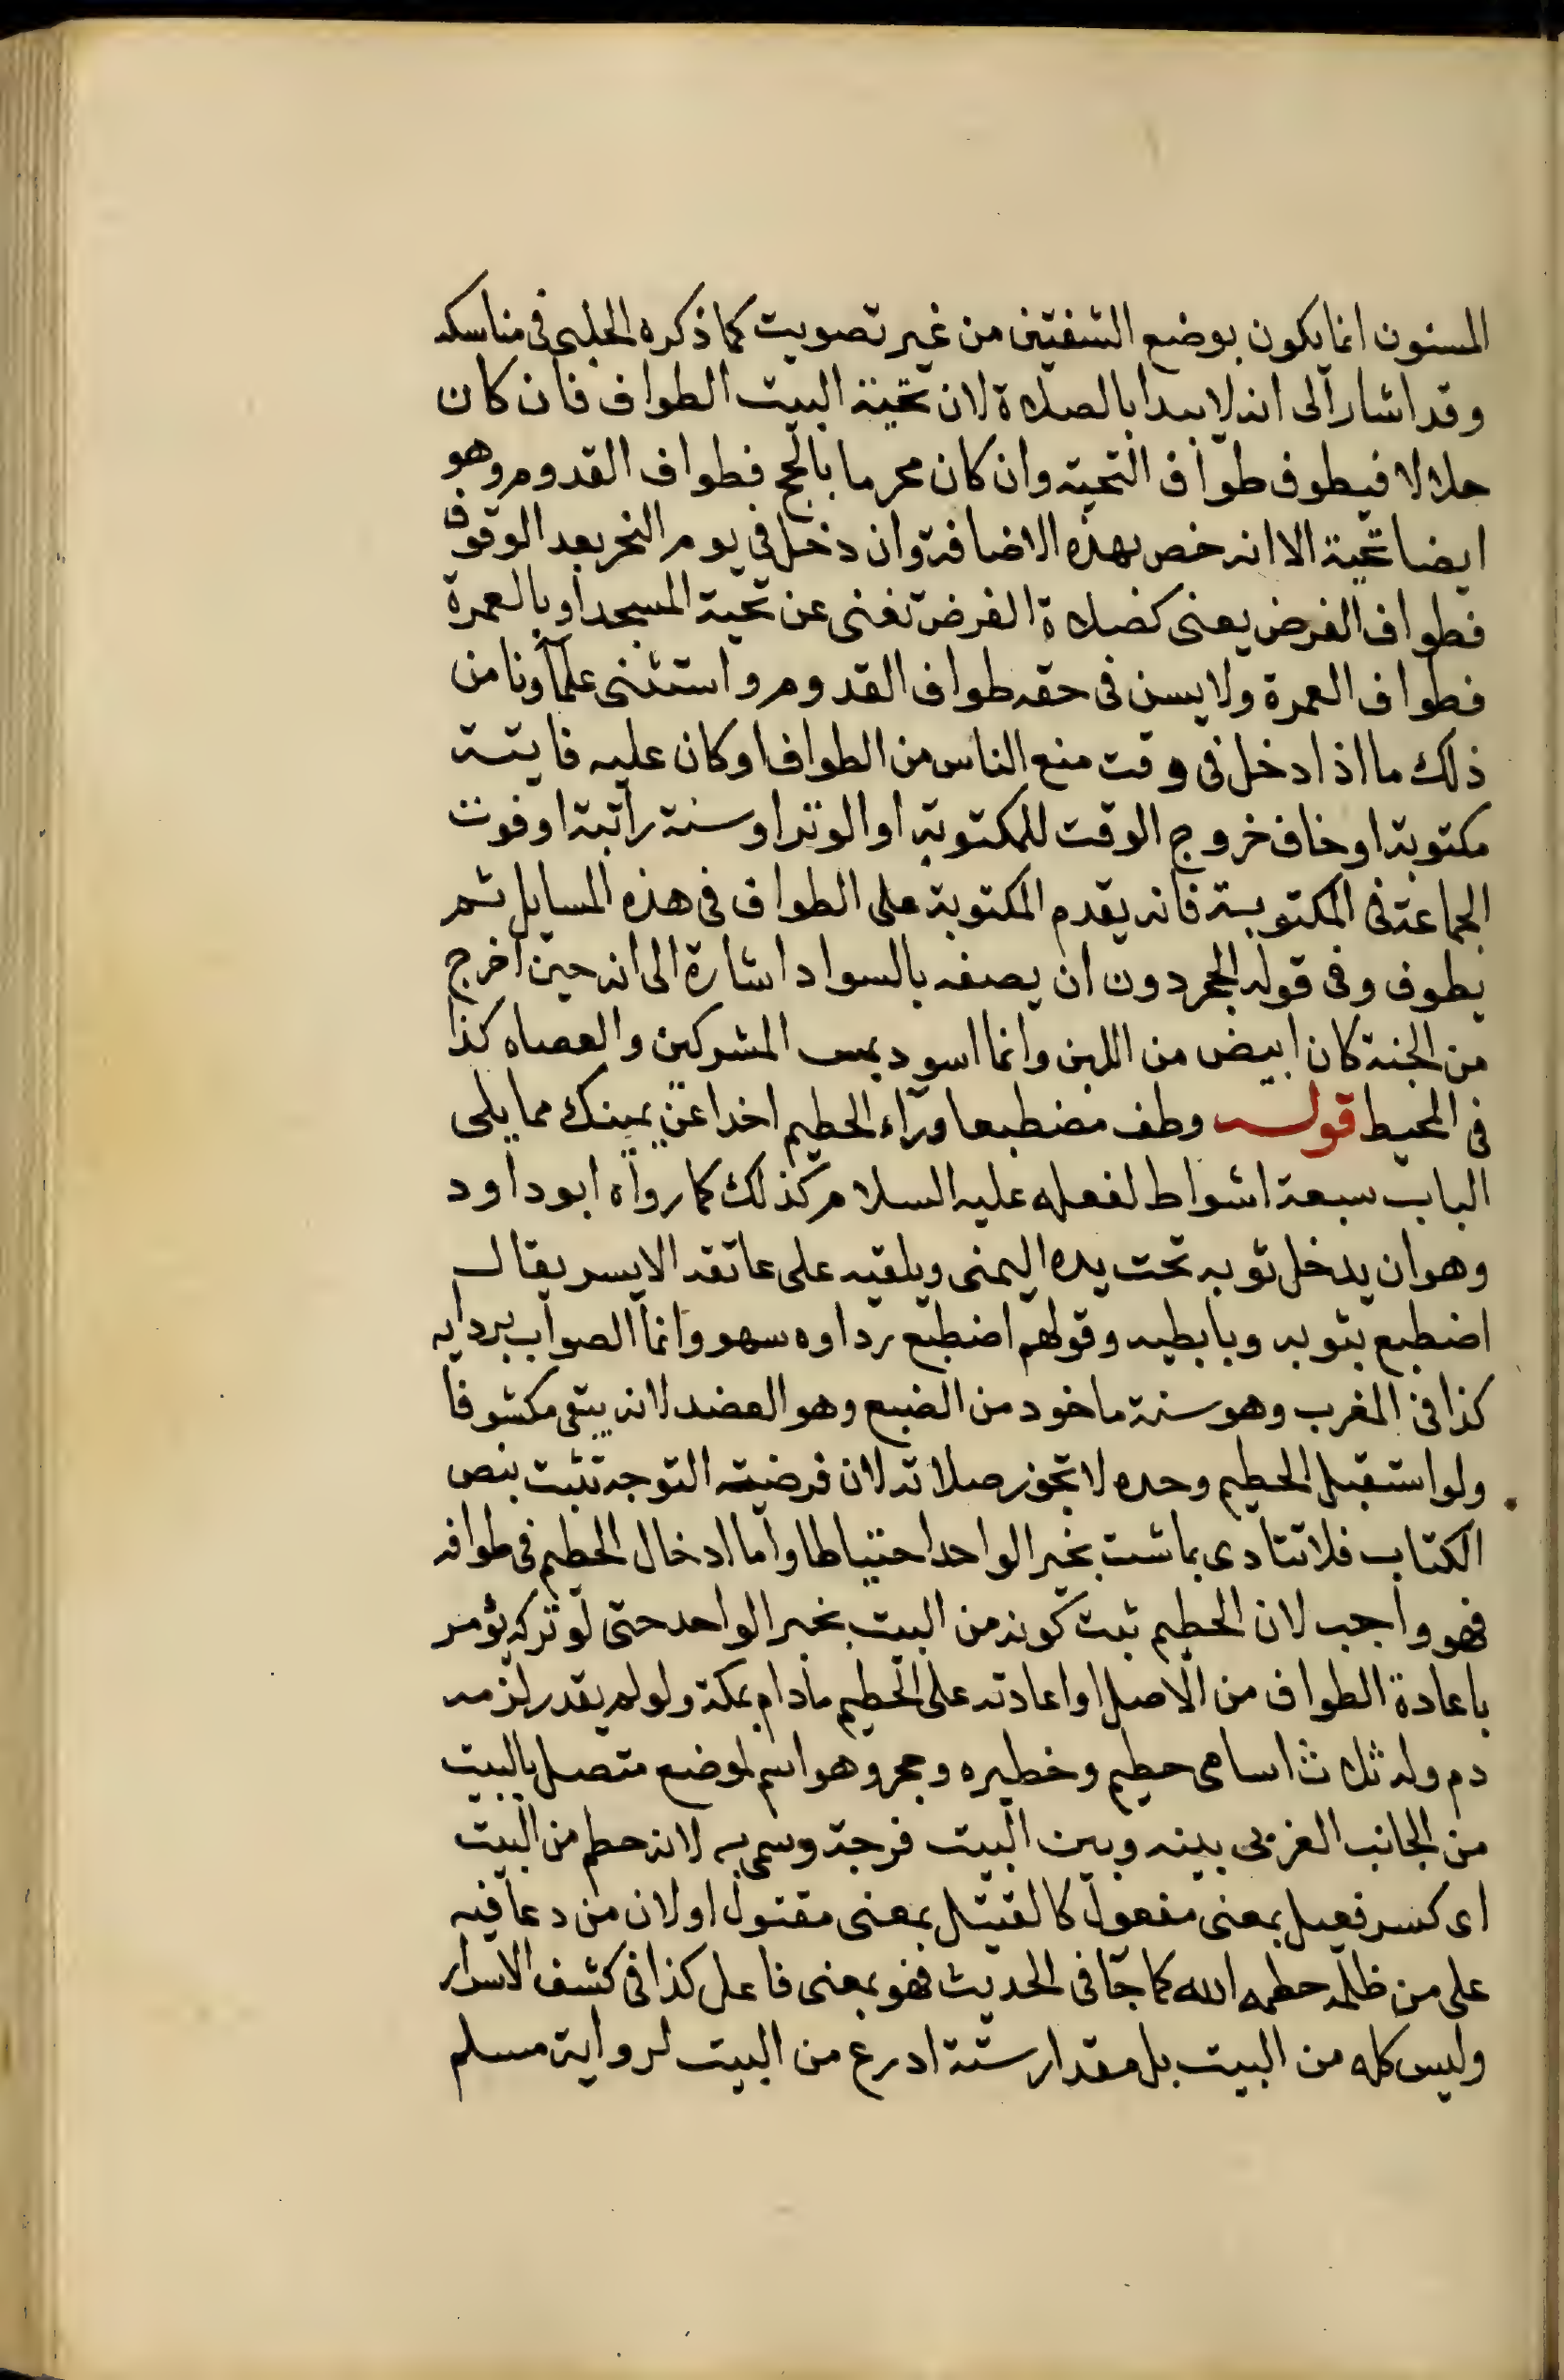 المسنون انما يكون بوضع الشفتين من غير تصويت كما ذكره الحلبى فى مناسكه
وقد اشار الى انه لا يبدا بالصلاة لان تحية البيت الطواف فان كان
حلالا فيطوف طواف التحية وان كان محرما بالحج فطواف القدوم وهو
ايضا تحية الا انه خص بهذه الاضافة وان دخل فى يوم النحر بعد الوقوف
فطواف الفرض يعنى كصلاة الفرض تغنى عن تحية المسجد او بالعمرة
فطواف العمرة ولا يسن فى حقه طواف القدوم واستثنى علماؤنا من
ذلك ما اذا دخل فى وقت منع الناس من الطواف او كان عليه فايتة
مكتوبة او خاف خروج الوقت للمكتوبة او الوتر او سنة راتبة او فوت
الجماعة فى المكتوبة فانه يقدم المكتوبة على الطواف فى هذه المسايل ثم
يطوف وفى قوله الحجر دون ان يصفه بالسواد اشارة الى انه حين اخرج
من الجنة كان ابيض من اللبن وانما اسود بمس المشركين والعصاه كذا
فى المحيط قوله وطف مضطبعا وراء الحطيم اخذا عن يمينك مما يلى
الباب سبعة اشواط لفعله عليه السلام كذلك كما رواه ابو داود
وهو ان يدخل ثوبه تحت يده اليمنى ويلقيه على عاتقه الايسر يقال
اضطبع بثوبه وبابطيه وقولهم اضطبع رداوه سهو وانما الصواب بردايه
كذا فى المغرب وهو سنة ماخوذ من الضبع وهو العضد لانه يبقى مكشوفا
ولو استقبل الحطيم وحده لا تجوز صلاته لان فرضية التوجه تثبت بنص
الكتاب فلا تتادى بما ثبت بخبر الواحد احتياطا واما ادخال الحطيم فى طوافه
فهو واجب لان الحطيم ثبت كونه من البيت بخبر الواحد حتى لو تركه يؤمر
باعادة الطواف من الاصل او اعادته على الحطيم مادام بمكة ولو لم يقدر لزمه
دم وله ثلاث اسامى حطيم وخطيره وحجر وهو اسم لموضع متصل بالبيت
من الجانب الغربى بينه وبين البيت فرجة وسمى به لانه حطم من البيت
اى كسر فعيل بمعنى مفعول كالقتيل بمعنى مقتول او لان من دعا فيه
على من ظلمه حطمه الله كما جا فى الحديث فهو بمعنى فاعل كذا فى كشف الاسرار
وليس كله من البيت بل مقدار ستة ادرع من البيت لرواية مسلم